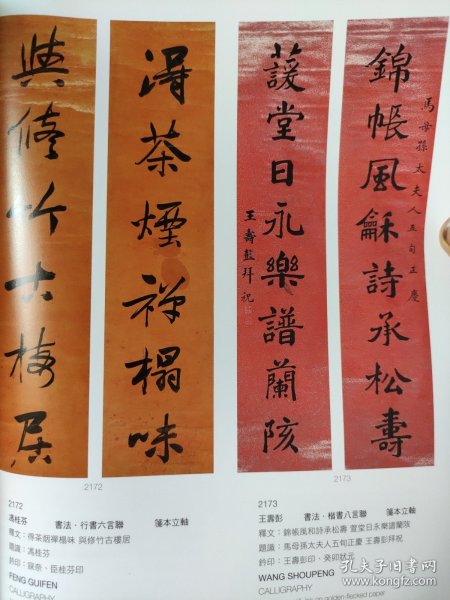 錦帳風龢詩承松壽
馬母孫太夫人五旬正慶
蘐堂日永樂譜蘭陔
王壽彭拜祝
得茶煙禅榻味
與脩竹古梅居
2172
2173
2172
馮桂芬 書法·行書六言聯 箋本立軸
釋文：得茶烟禪榻味 與修竹古樓居
題識：馮桂芬
鈐印：寐奈、臣桂芬印
FENG GUIFEN
CALLIGRAPHY
2173
王壽彭 書法·楷書八言聯 箋本立軸
釋文：錦帳風和詩承松壽 萱堂日永樂譜蘭陔
題識：馬母孫太夫人五旬正慶 王壽彭拜祝
鈐印：王壽彭印、癸卯狀元
WANG SHOUPENG
CALLIGRAPHY
ink on golden-flecked paper
孔夫子旧书网